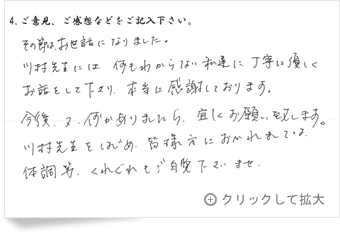 4.ご意見、ご感想などをご記入下さい。
その節はお世話になりました。
川村先生には、何もわからない私達に丁寧に優しく
お話をして下さり、本当に感謝しております。
今後、又、何かありましたら、宜しくお願い致します。
川村先生をはじめ、皆様方におかれましては、
体調等、くれぐれもご自愛下さいませ。
クリックして拡大